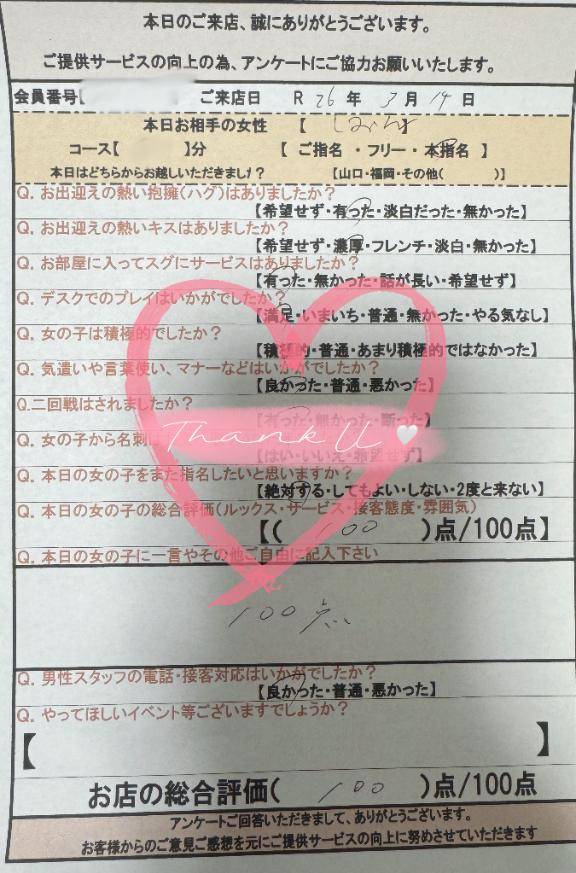 本日のご来店、誠にありがとうございます。
ご提供サービスの向上の為、アンケートにご協力お願いいたします。
会員番号 ご来店日 R 26 年 3 月 14 日
本日お相手の女性 【 】
コース【 】分 【 ご指名 ・フリー・本指名 】
本日はどちらからお越しいただきました? 【山口・福岡・その他( )】
Q. お出迎えの熱い抱擁(ハグ)はありましたか?
【希望せず・有った・淡白だった・無かった】
Q. お出迎えの熱いキスはありましたか?
【希望せず・濃厚・フレンチ・淡白・無かった】
Q. お部屋に入ってスグにサービスはありましたか?
【有った・無かった・話が長い・希望せず】
Q. デスクでのプレイはいかがでしたか?
【満足・いまいち・普通・無かった・やる気なし】
Q. 女の子は積極的でしたか?
【積極的・普通・あまり積極的ではなかった】
Q. 気遣いや言葉使い、マナーなどはいかがでしたか?
【良かった・普通・悪かった】
Q.二回戦はされましたか?
【有った・無かった・断った】
Q. 女の子から名刺は
Thank U
【はい・いいえ・希望せず】
Q. 本日の女の子をまた指名したいと思いますか?
【絶対する・してもよい・しない・2度と来ない】
Q. 本日の女の子の総合評価(ルックス・サービス・接客態度・雰囲気)
【( 100 )点/100点】
Q. 本日の女の子に一言やその他ご自由に記入下さい
100点
Q. 男性スタッフの電話・接客対応はいかがでしたか?
【良かった・普通・悪かった】
Q. やってほしいイベント等ございますでしょうか?
【 】
お店の総合評価( 100 )点/100点
アンケートご回答いただきまして、ありがとうございます。
お客様からのご意見ご感想を元にご提供サービスの向上に努めさせていただきます